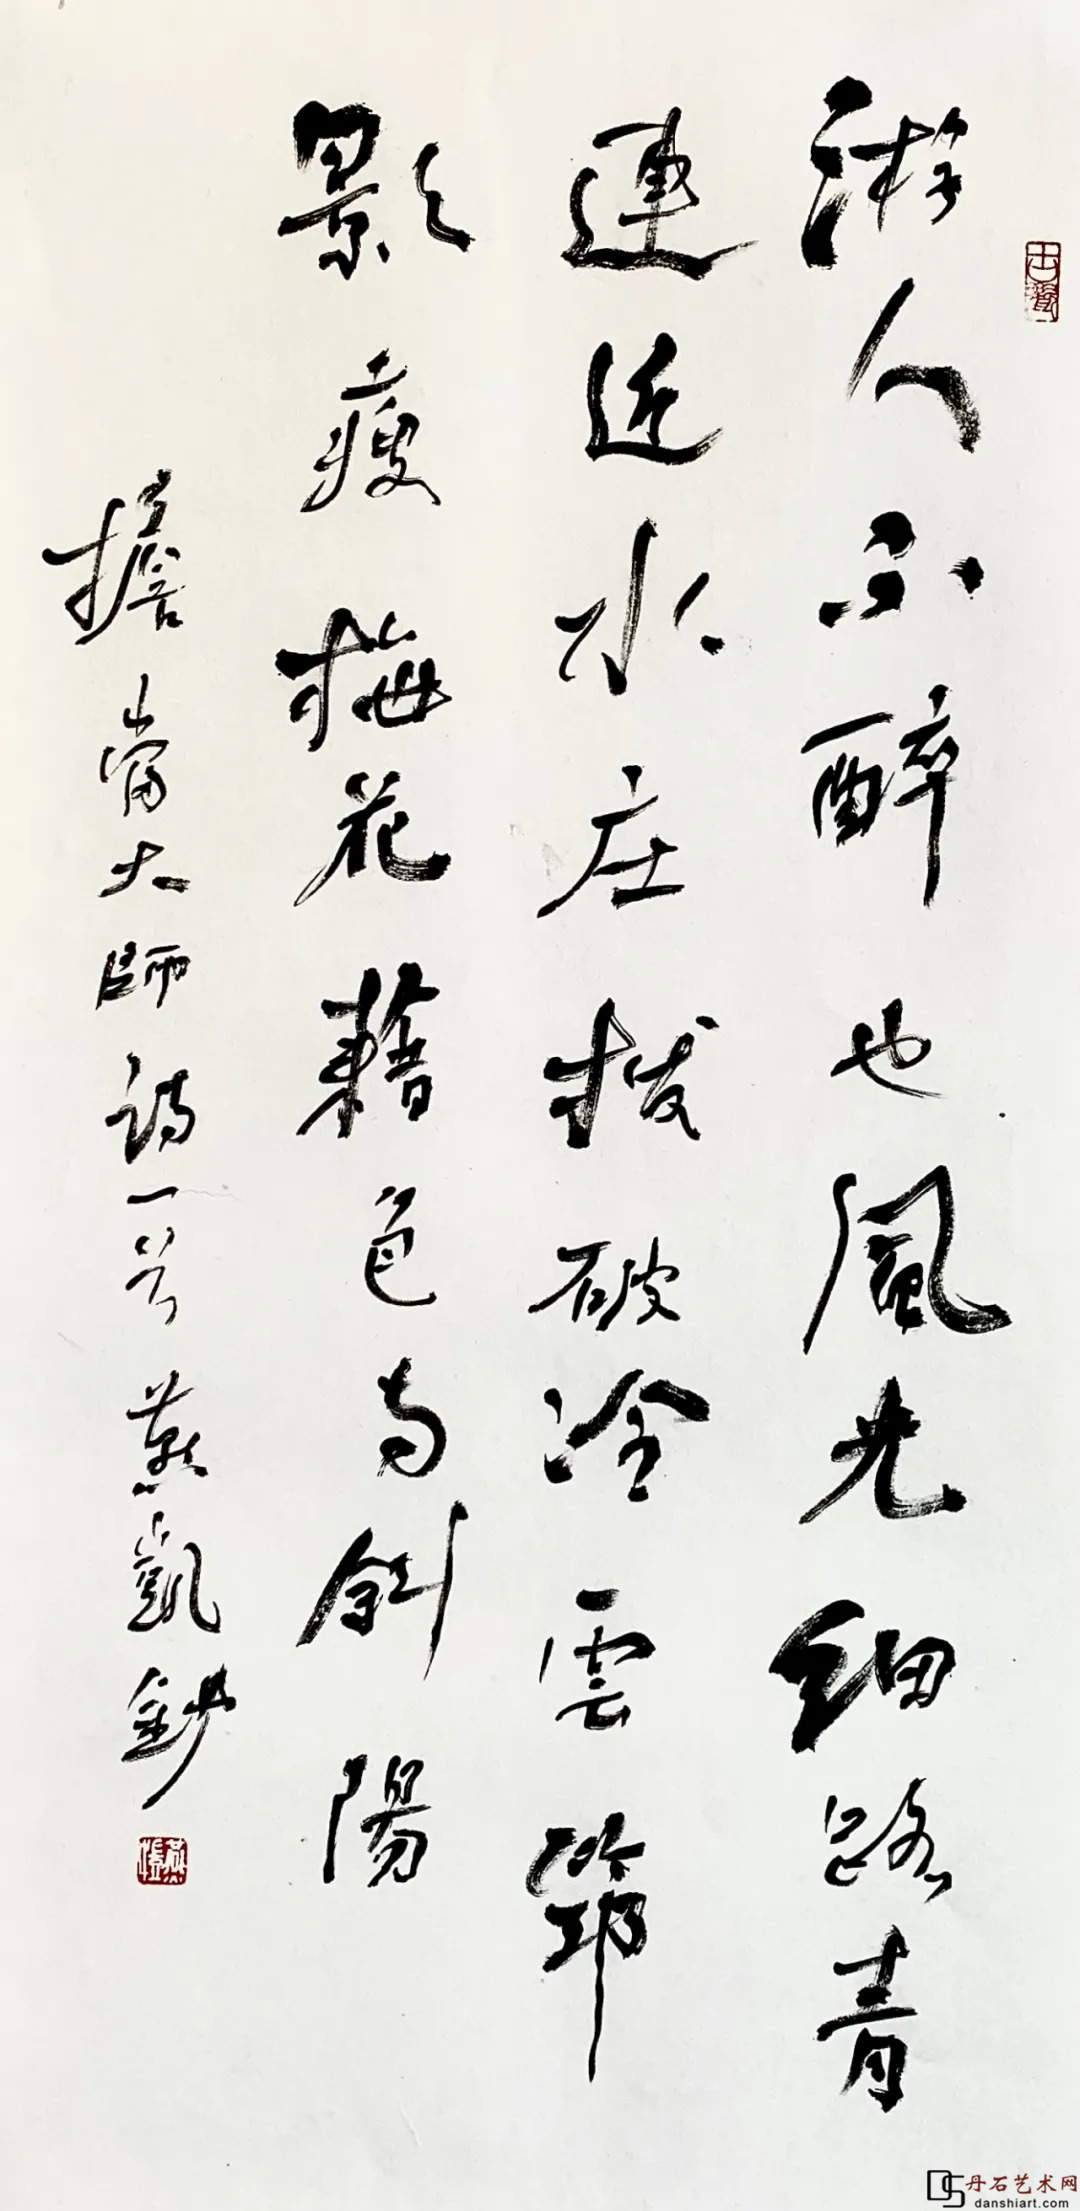 游人不醉也風光細路青
連近水庄拨破冷雲筇
影瘦梅花藉色与斜陽
擔當大師詩一首燕凱鈔
DS 丹石艺术网
danshiart.com